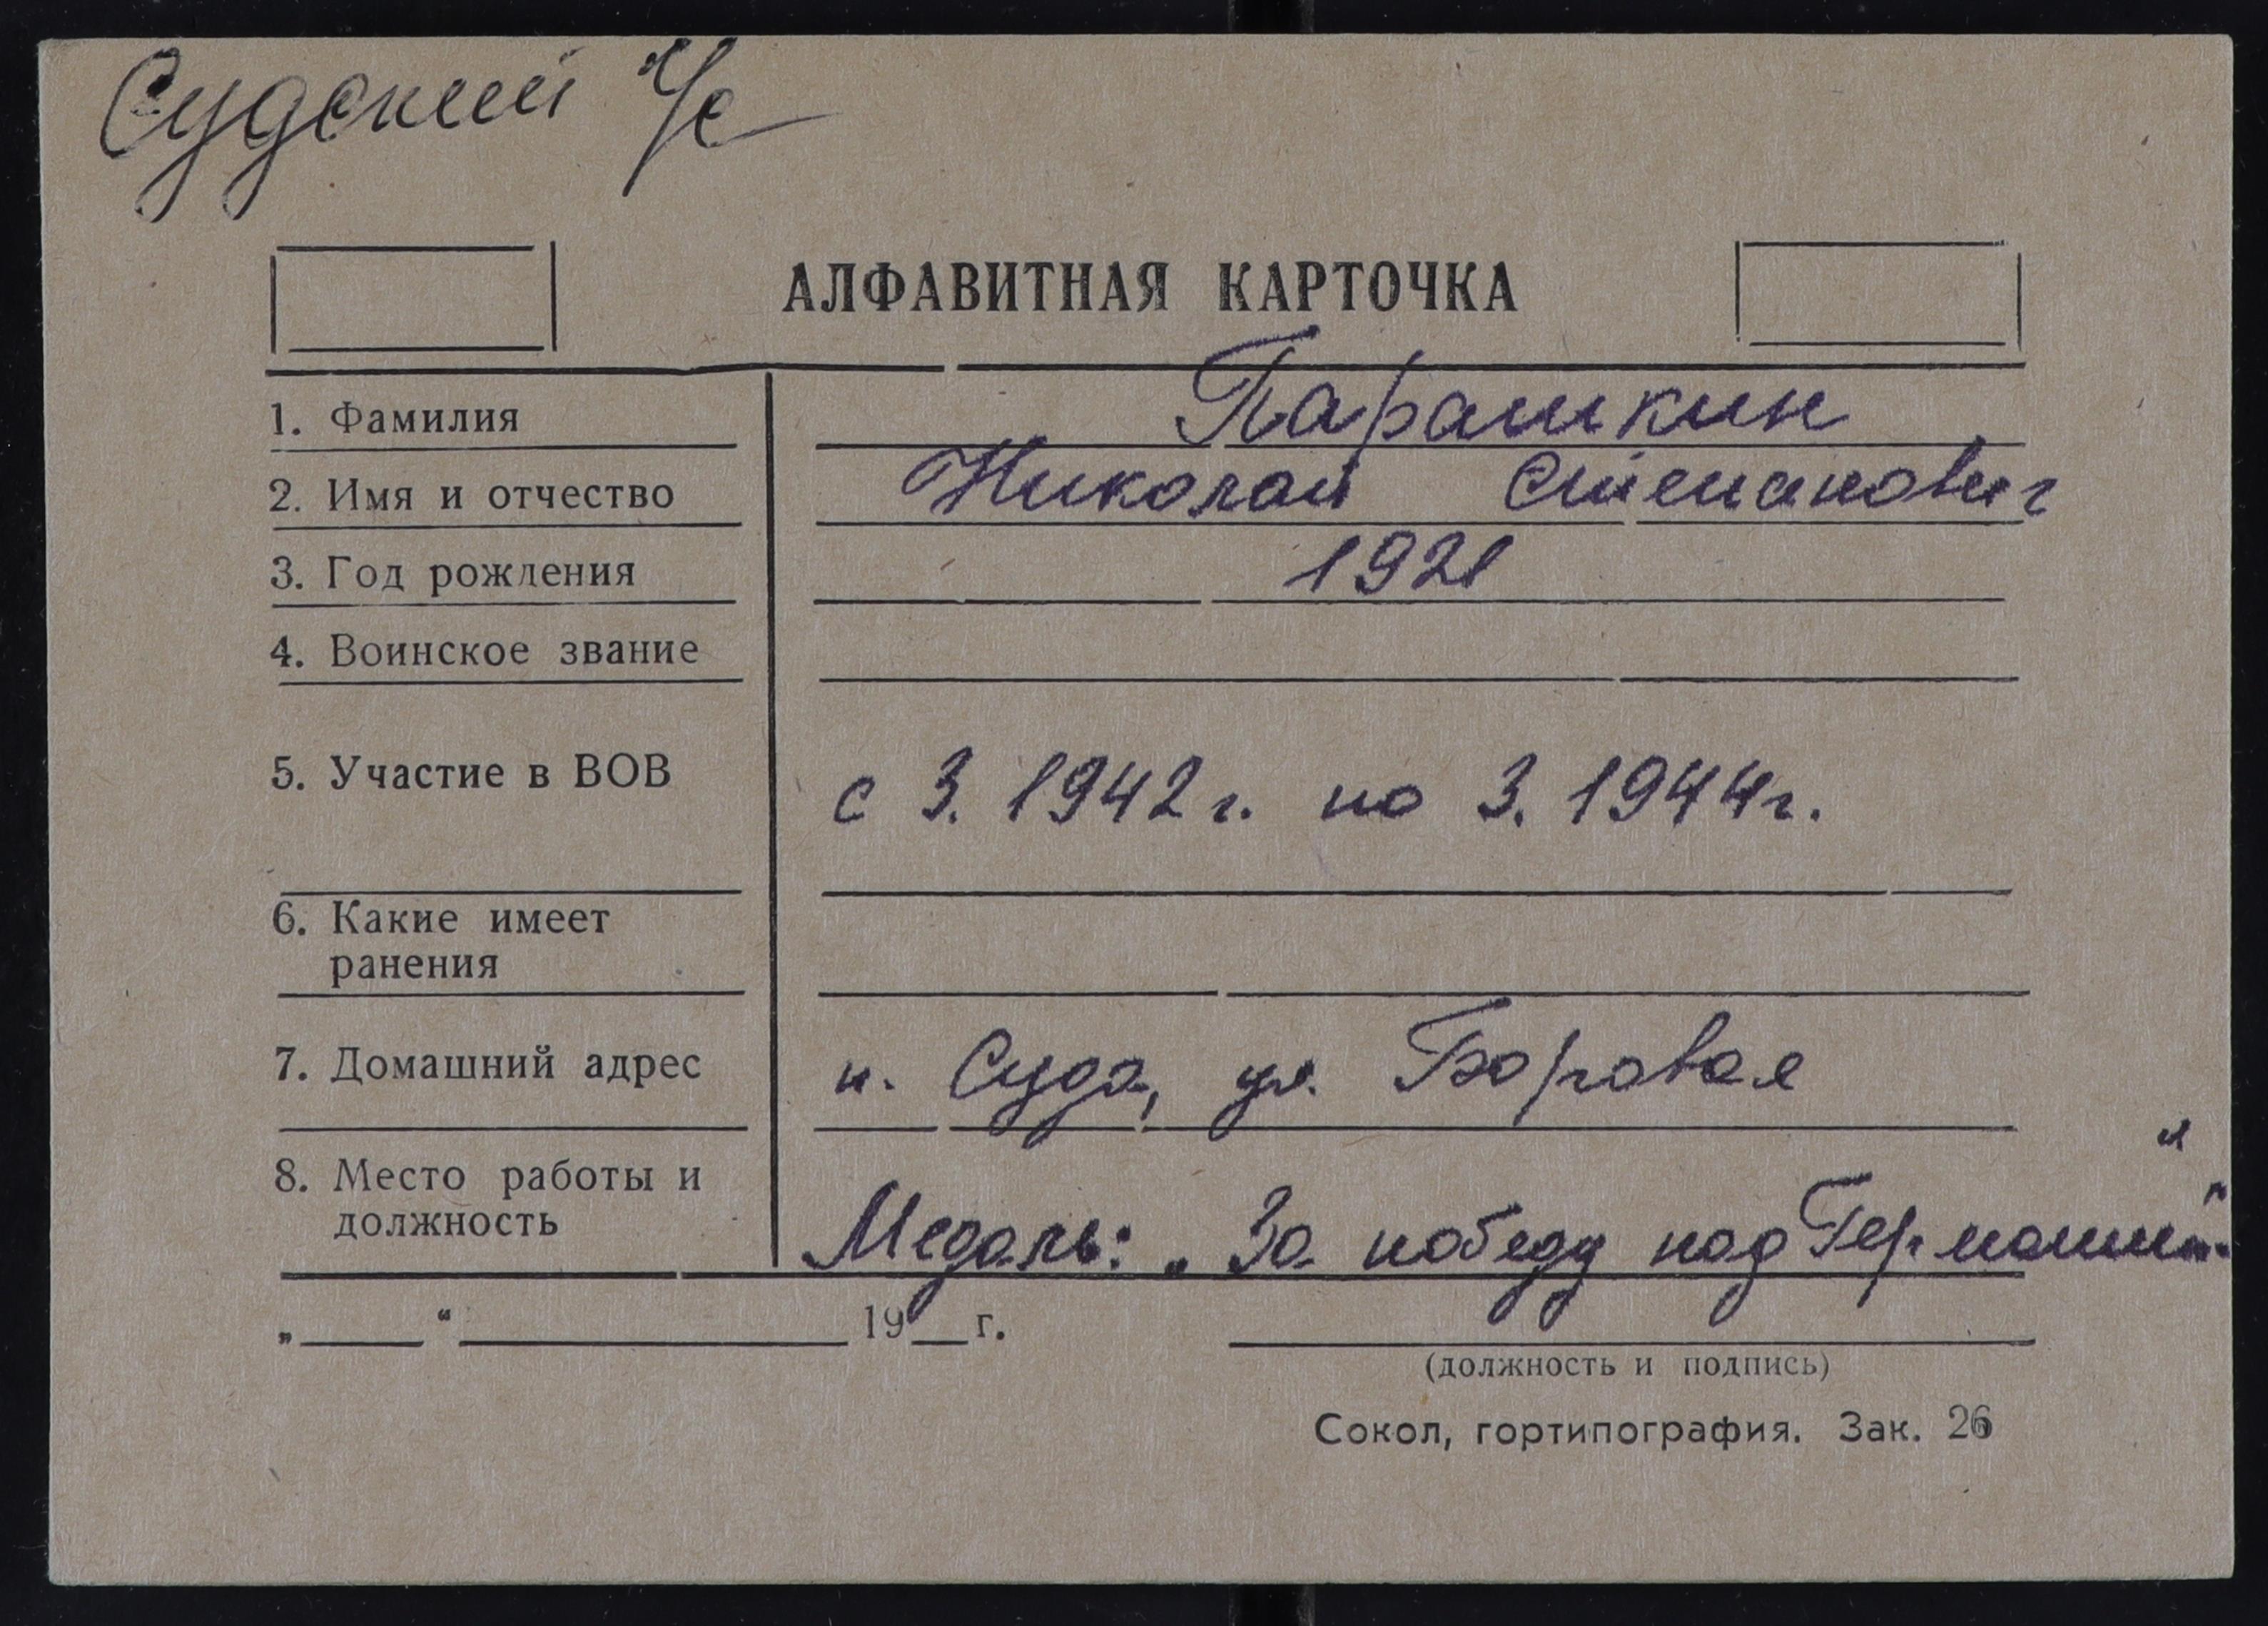 Судский ч/с
АЛФАВИТНАЯ КАРТОЧКА
1. Фамилия Парашкин
2. Имя и отчество Николай Степанович
3. Год рождения 1921
4. Воинское звание
5. Участие в ВОВ с 3. 1942 г. по 3. 1944 г.
6. Какие имеет
ранения
7. Домашний адрес п. Суда, ул. Боровая
8. Место работы и
должность Медаль: „За победу над Германией“
„ “ 19 г.
(должность и подпись)
Сокол, гортипография. Зак. 26